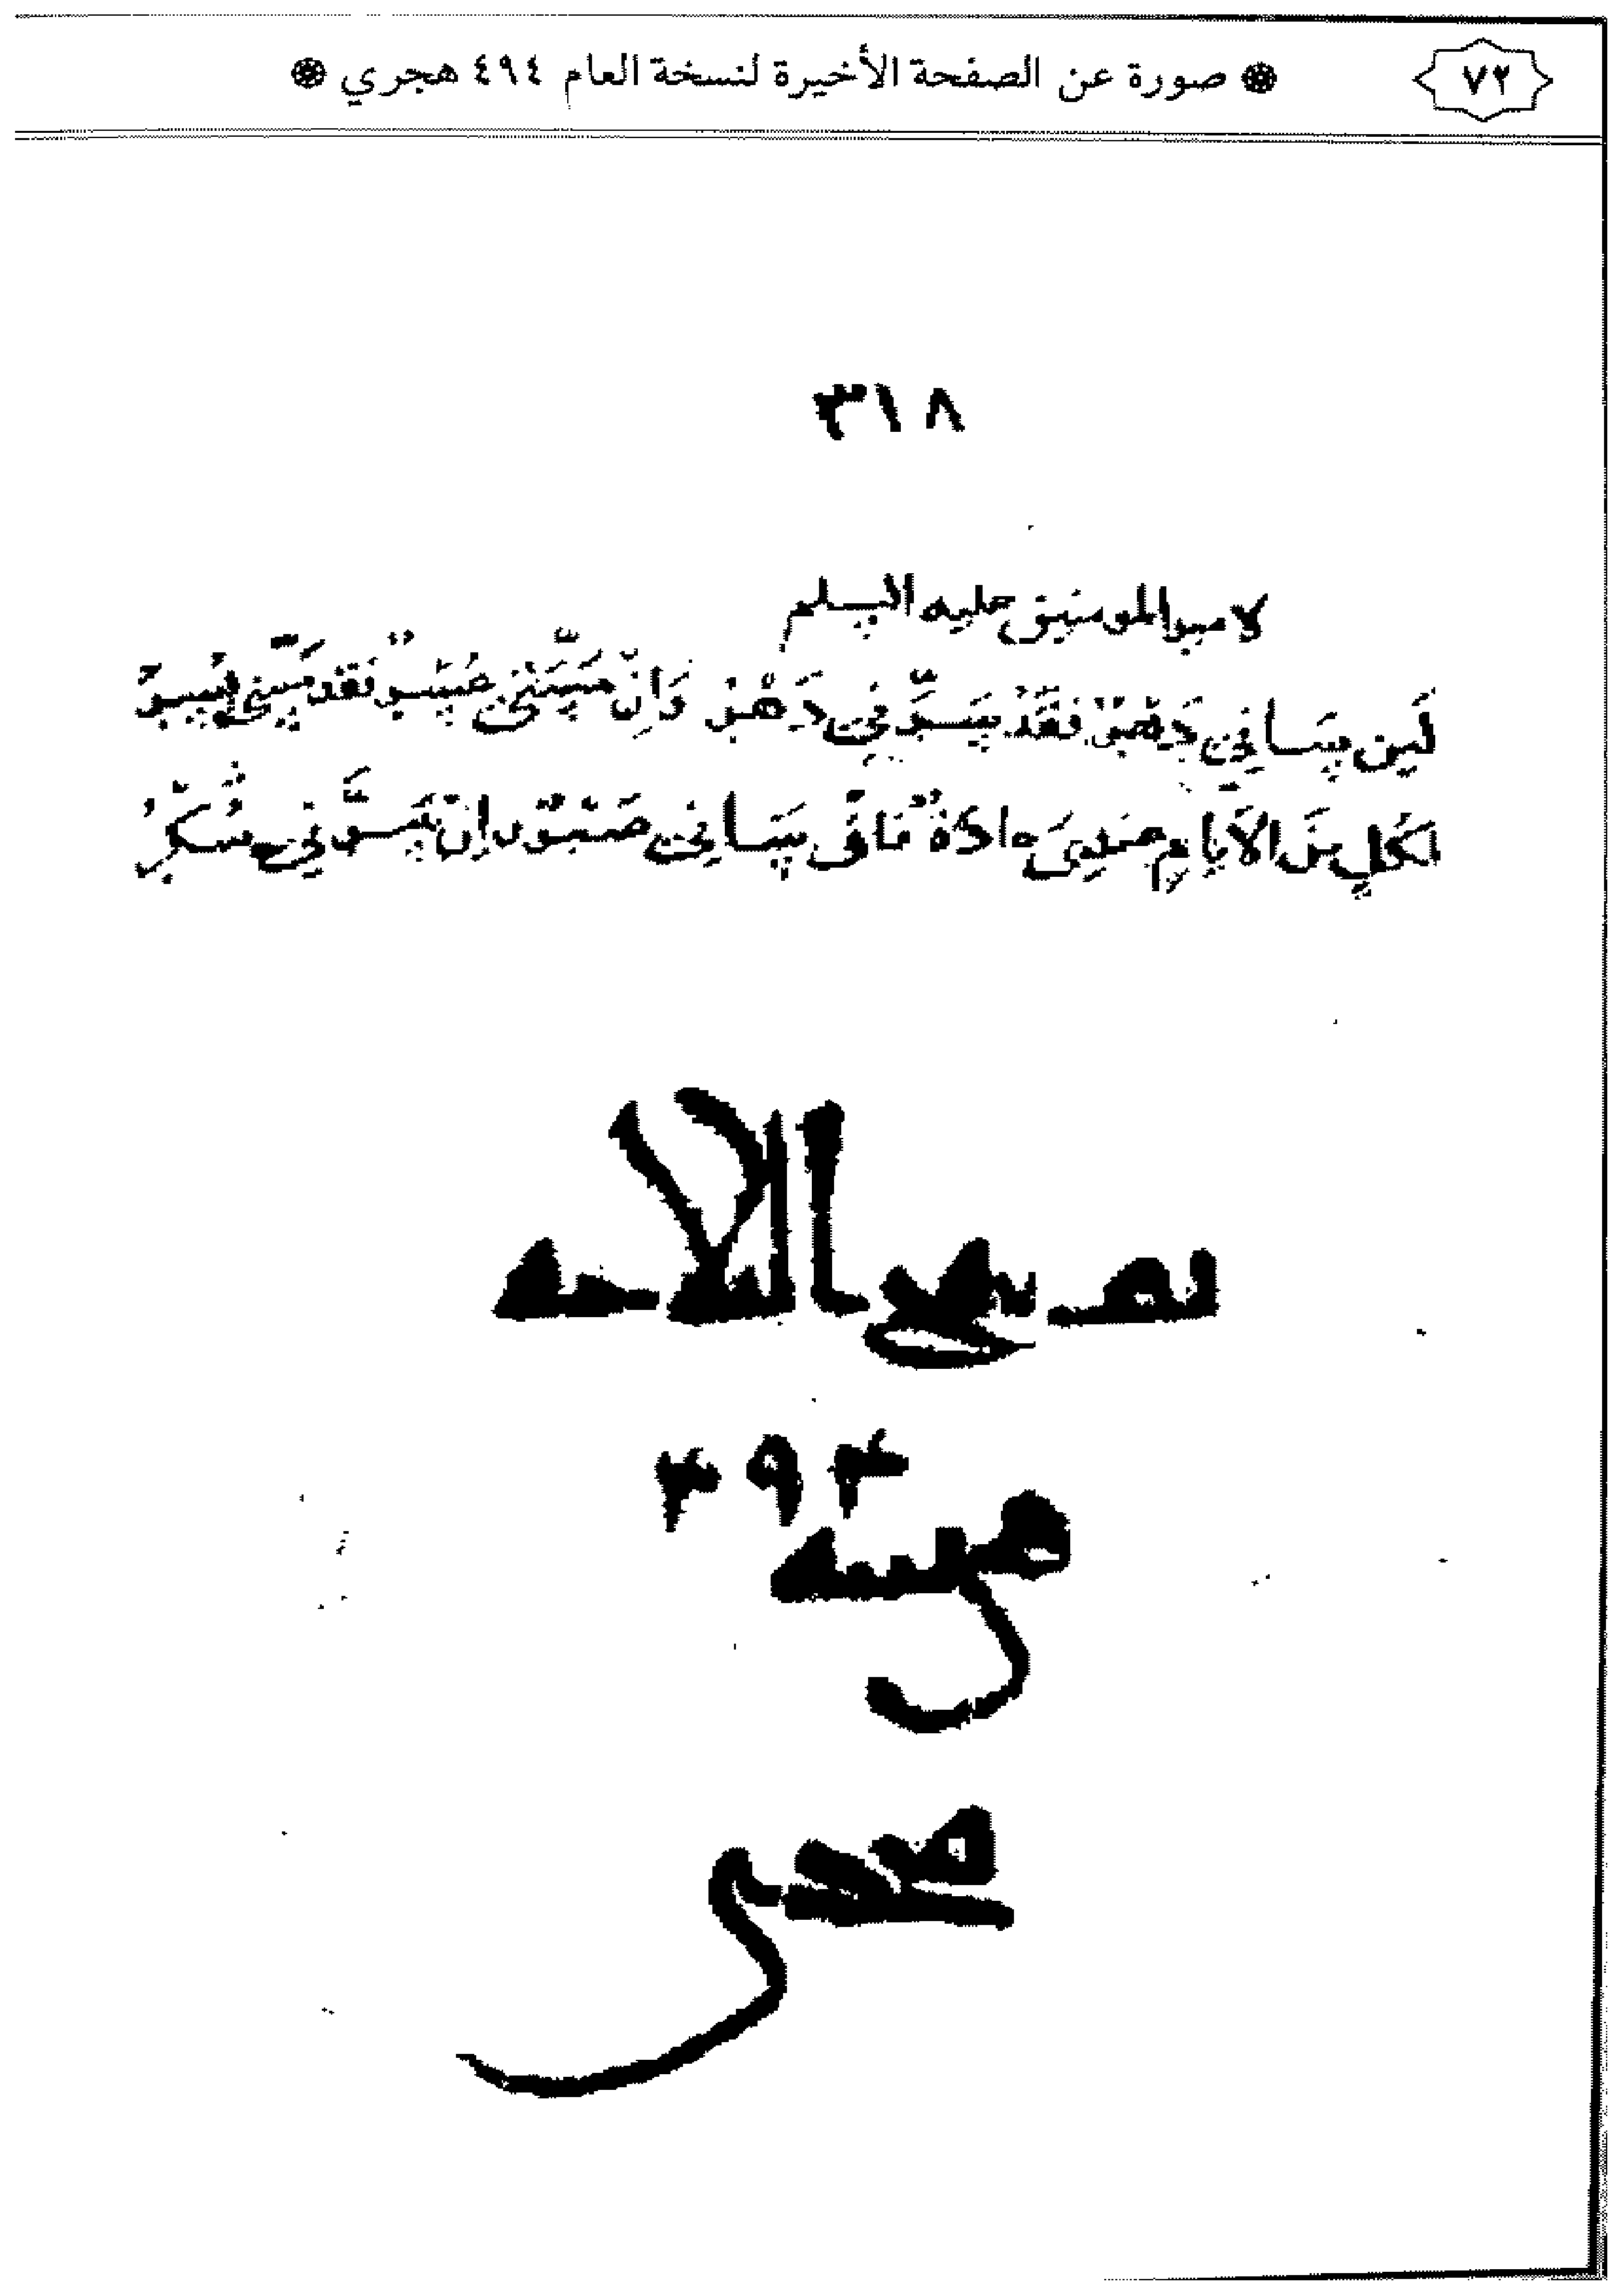 ٧٢ صورة عن الصفحة الأخيرة لنسخة العام ٤٩٤ هجري
٣١٨
لامير المومنين عليه السلم
لَئِن سَاني دَهْرٌ فَقَدْ سَرَّني دَهْرٌ وَاِنْ مَسَّنِي عُسْرٌ فَقَد مَسَّنِي يُسْرُ
لكُلٍ مِنَ الاَيامِ عندي عادةٌ فان سَانِي صَبْرٌ وان سَرَّنِي شُكْرُ
نهج البلاغه
٤٩٤